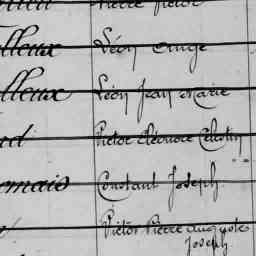 Pierre Victor
lleux Léon Ange
lleux Léon Jean Marie
Victor Éléonore Célestin
Constant Joseph
Victor Pierre Auguste
Joseph